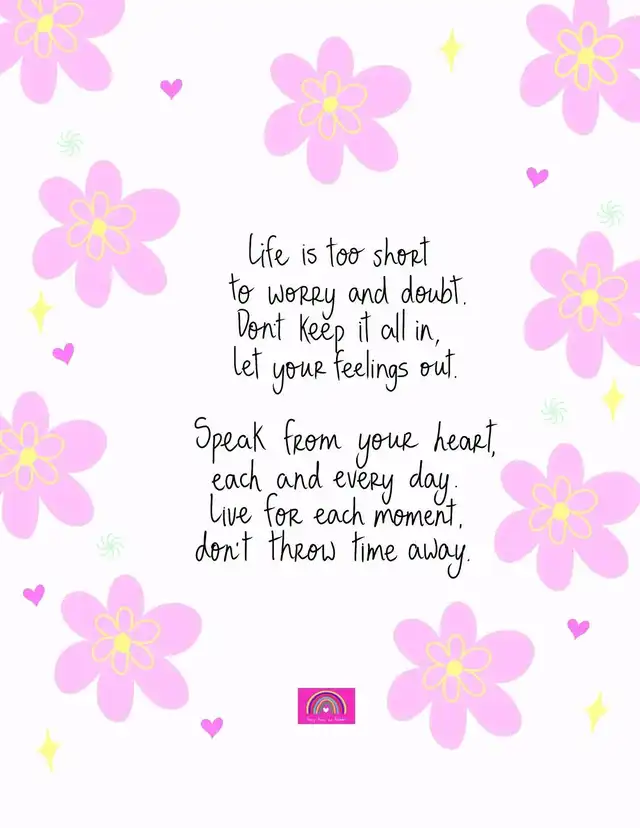 Life is too short
to worry and doubt.
Don't keep it all in,
let your feelings out.
Speak from your heart,
each and every day.
Live for each moment,
don't throw time away.